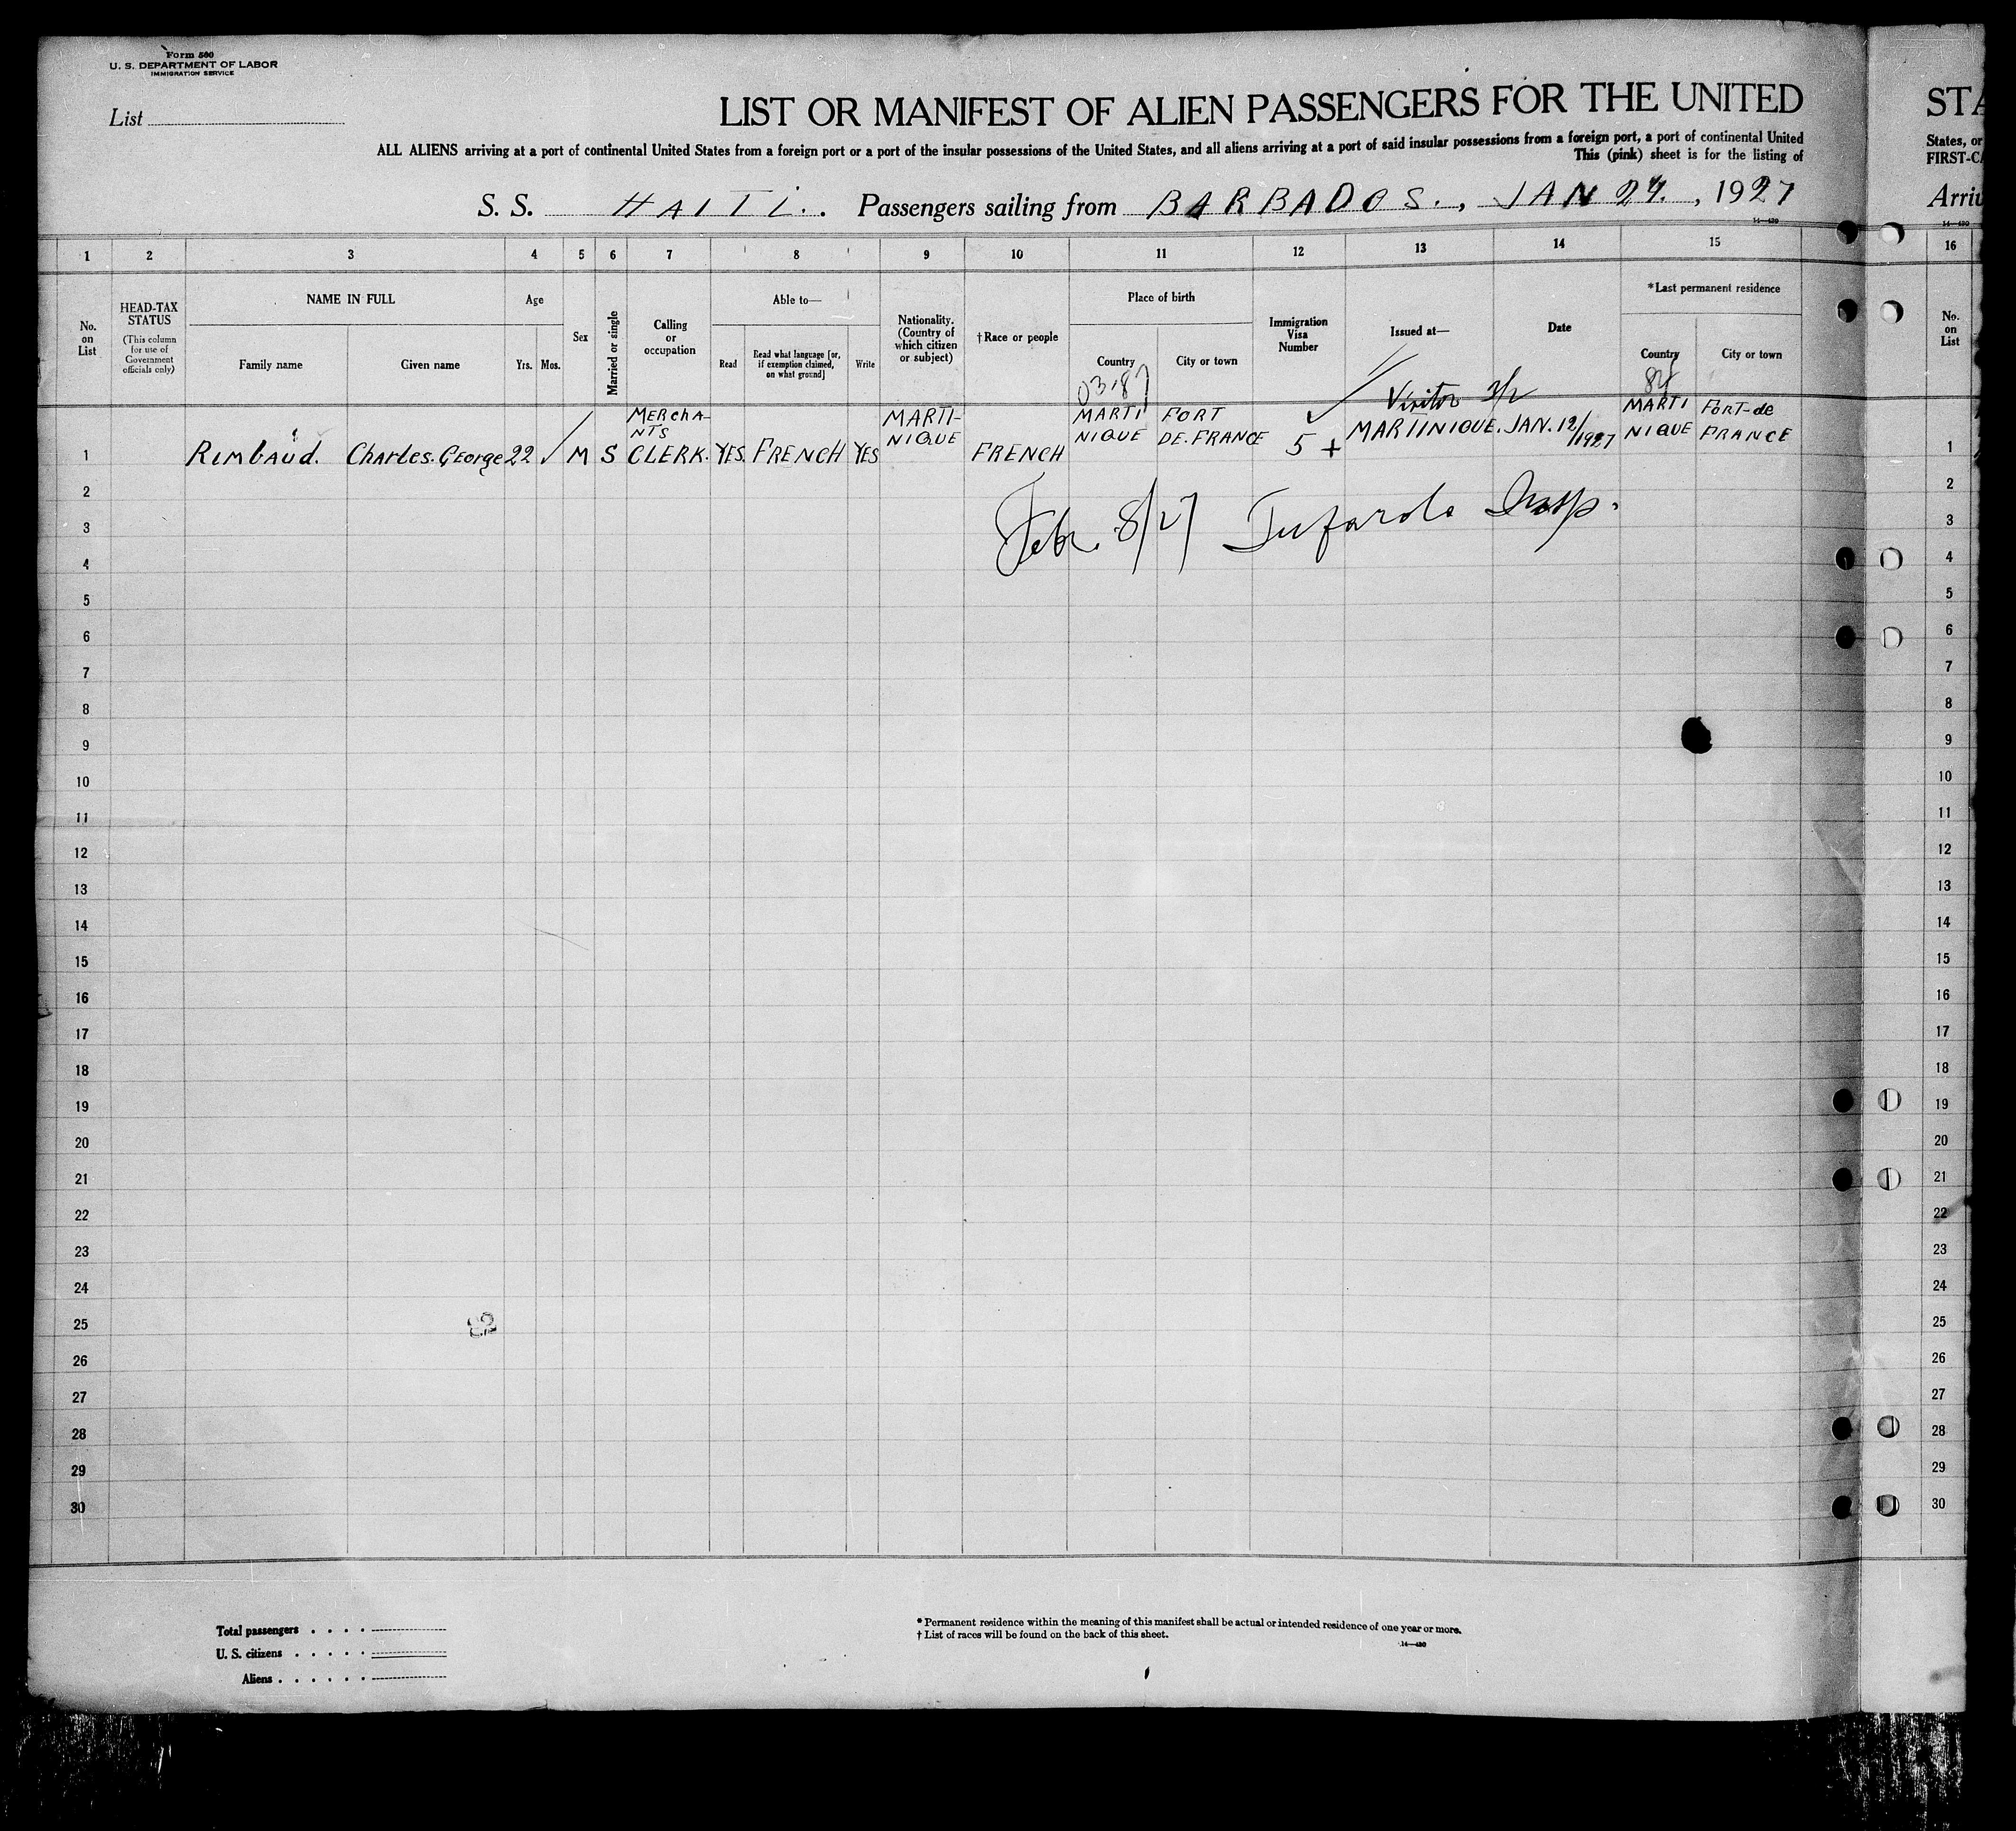 Form 500
U. S. DEPARTMENT OF LABOR
IMMIGRATION SERVICE
List
LIST OR MANIFEST OF ALIEN PASSENGERS FOR THE UNITED
ALL ALIENS arriving at a port of continental United States from a foreign port or a port of the insular possessions of the United States, and all aliens arriving at a port of said insular possessions from a foreign port, a port of continental United
This (pink) sheet is for the listing of
S. S. HAITI. Passengers sailing from BARBADOS., JAN 27., 1927
14—430
STA
States, or
FIRST-CA
Arriv
14—430
1 2 3 4 5 6 7 8 9 10 11 12 13 14 15 16
No. on List
HEAD-TAX STATUS
(This column for use of Government officials only)
NAME IN FULL
Family name
Given name
Age
Yrs. Mos.
Sex
Married or single
Calling or occupation
Able to—
Read
Read what language [or, if exemption claimed, on what ground]
Write
Nationality. (Country of which citizen or subject)
†Race or people
Place of birth
Country
City or town
Immigration Visa Number
Issued at—
Date
*Last permanent residence
Country
City or town
No. on List
0318
Visitor
84
1 Rimbaud. Charles. George 22 M S MERCHANTS CLERK. YES. FRENCH YES MARTI-NIQUE FRENCH MARTI NIQUE FORT DE. FRANCE 5 + MARTINIQUE. JAN. 12/1927 MARTI NIQUE FORT-de FRANCE 1
Feb. 8/27 Insp.
2 2
3 3
4 4
5 5
6 6
7 7
8 8
9 9
10 10
11 11
12 12
13 13
14 14
15 15
16 16
17 17
18 18
19 19
20 20
21 21
22 22
23 23
24 24
25 25
26 26
27 27
28 28
29 29
30 30
Total passengers
U. S. citizens
Aliens
* Permanent residence within the meaning of this manifest shall be actual or intended residence of one year or more.
† List of races will be found on the back of this sheet.
14—430